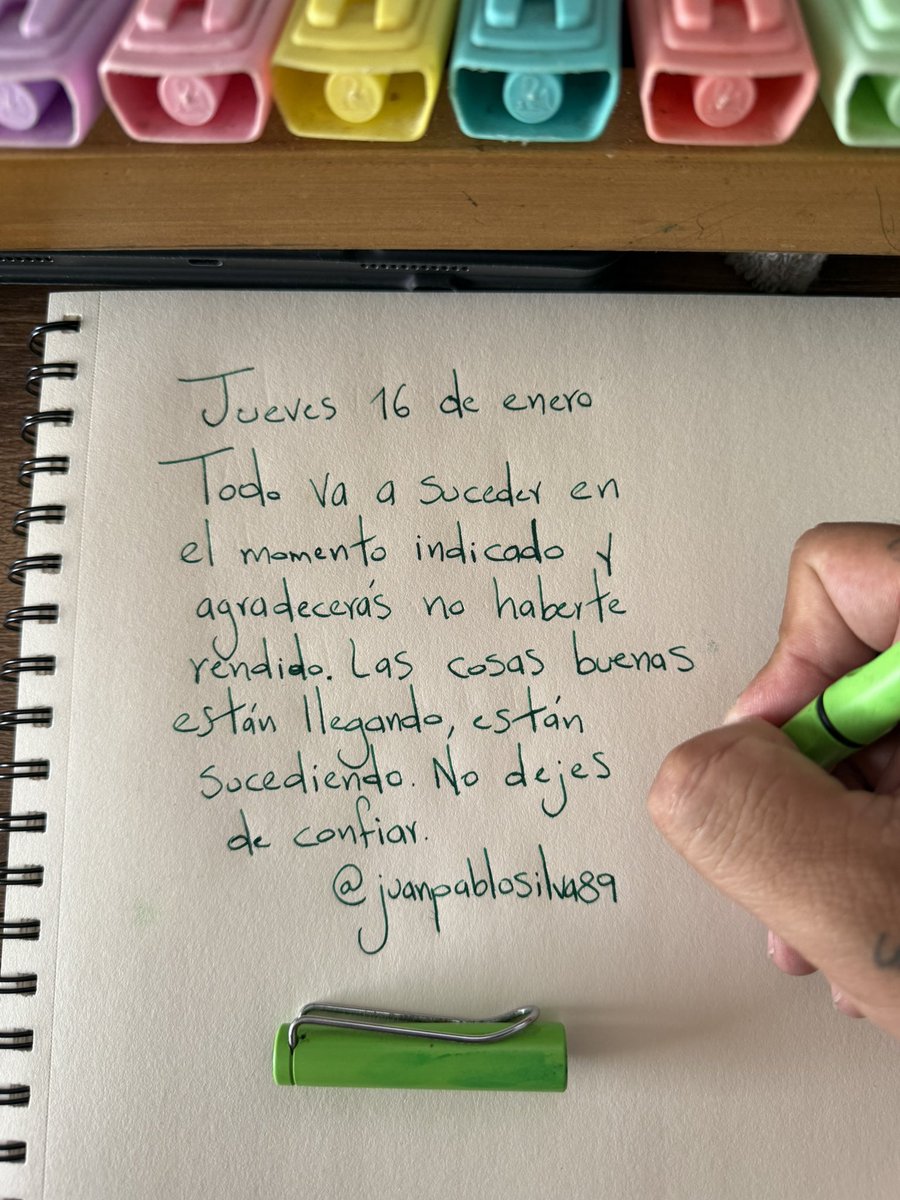 Jueves 16 de enero
Todo va a suceder en
el momento indicado y
agradecerás no haberte
rendido. Las cosas buenas
están llegando, están
sucediendo. No dejes
de confiar.
@juanpablosilva89